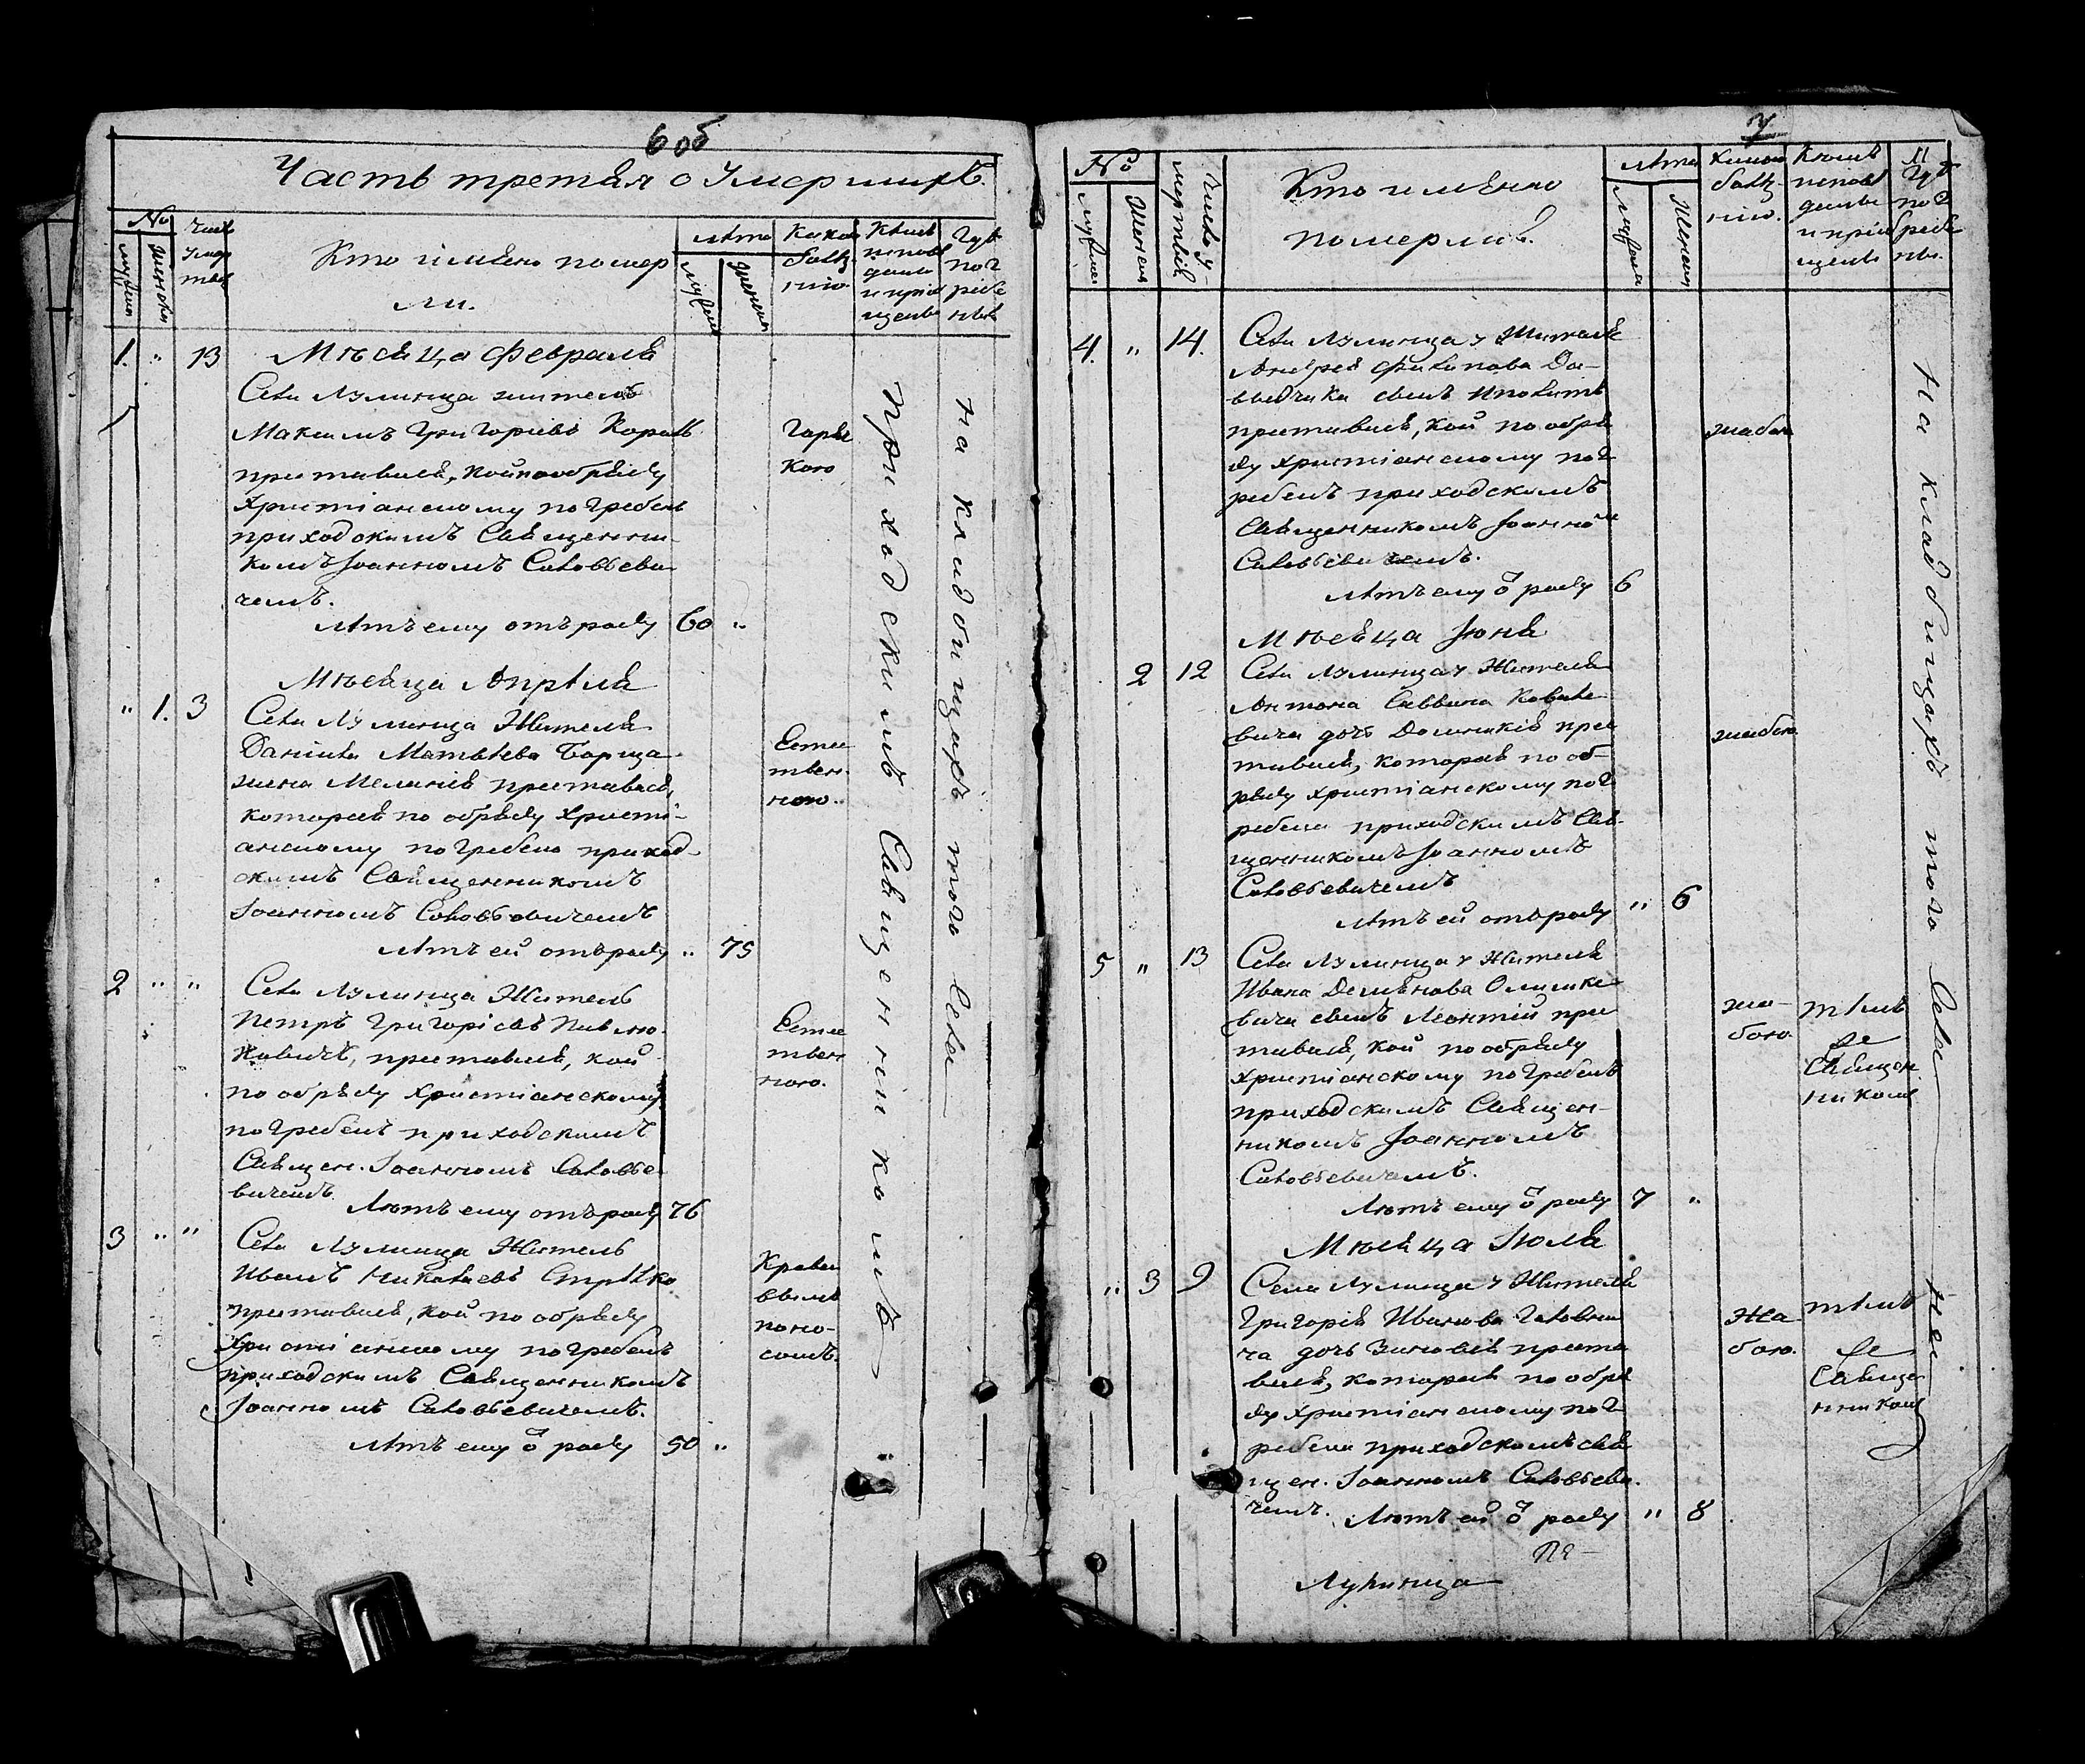 6 об
Часть третья о Умершихъ.
№
Числ
Умер
твія
Кто имѣно помер
ли.
Лѣта
Какою
болѣ-
нію.
Кѣмъ
исповѣ
дани
и пріо
щены
Гдѣ
пог
ребе
ны
мужеска
женска
мужеска
женска
1. " 13
Мѣсяца Февраля
Села Лулинца житель
Максимъ Григоріевъ Король
преставися, кой по обряду
Христіанскому погребенъ
приходскимъ Священни-
комъ Іоанномъ Соловьеви
чемъ.
Лѣтъ ему отъ роду 60 "
Горяч
кою
Мѣсяца Апрѣля
" 1. 3
Села Лулинца Жителя
Даніила Матвѣева Борща
жена Меланія преставися,
которая по обряду Христі-
анскому погребена приход-
скимъ Священникомъ
Іоанномъ Соловьевичемъ
Лѣтъ ей отъ роду " 75
Естес
твен-
ною.
2 " "
Села Лулинца Житель
Петръ Григоріевъ Павлю-
ковичъ, преставися, кой
по обряду Христіанскому
погребенъ приходскимъ
Священ. Іоанномъ Соловье-
вичемъ.
Лѣтъ ему отъ роду 76
Естес
твен
ною.
3 " "
Села Лулинца Житель
Иванъ Николаевъ Стрѣлко
преставися, кой по обряду
Христіанскому погребенъ
приходскимъ Священникомъ
Іоанномъ Соловьевичемъ.
Лѣтъ ему о роду 50 "
Крова
вымъ
поно-
сомъ.
Приходскимъ Священникомъ
На кладбищахъ того Села
7
№
мужеска
женска
Число у-
мертвія
Кто имѣнно
померлив.
Лѣта
мужеска
женска
Какою
болѣ-
нію.
Кѣмъ
исповѣ
даны
и пріо
щены
И
Гдѣ
пог
ребе
ны.
4. " 14.
Села Лулинца у Жителя
Андрея Филипова Да-
выдчика сынъ Иполитъ
преставися, кой по обря
ду Христіанскому пог
ребенъ приходскимъ
Священникомъ Іоанномъ
Соловьевичемъ.
Лѣтъ ему о роду 6
жабою
Мѣсяца Іюня
2 12
Села Лулинца у Жителя
Антона Саввина Ковале
вича дочь Доминикія прес
тавися, которая по об-
ряду христіанскому пог
ребена приходскимъ Свя-
щенникомъ Іоанномъ
Соловьевичемъ
Лѣтъ ей отъ роду " 6
жабою.
5 " 13
Села Лулинца у Жителя
Ивана Демьянова Олишке
вича сынъ Леонтій прес
тавися, кой по обряду
Христіанскому погребенъ
приходскимъ Священ-
никомъ Іоанномъ
Соловьевичемъ.
Лѣтъ ему о роду 7 "
жа-
бою.
тѣмъ
же
Священ
никомъ
Мѣсяца Іюля
" 3 9
Села Лулинца у Жителя
Григорія Иванова Головчи
ча дочь Зиновія преста
вися, которая по обря
ду Христіанскому пог
ребена приходскимъ Свя
щен. Іоанномъ Соловьеви
чемъ. Лѣтъ ей о роду " 8
Жа
бою.
тѣмъ
же
Свяще
нникомъ
На кладбищахъ того Села
Лунинца